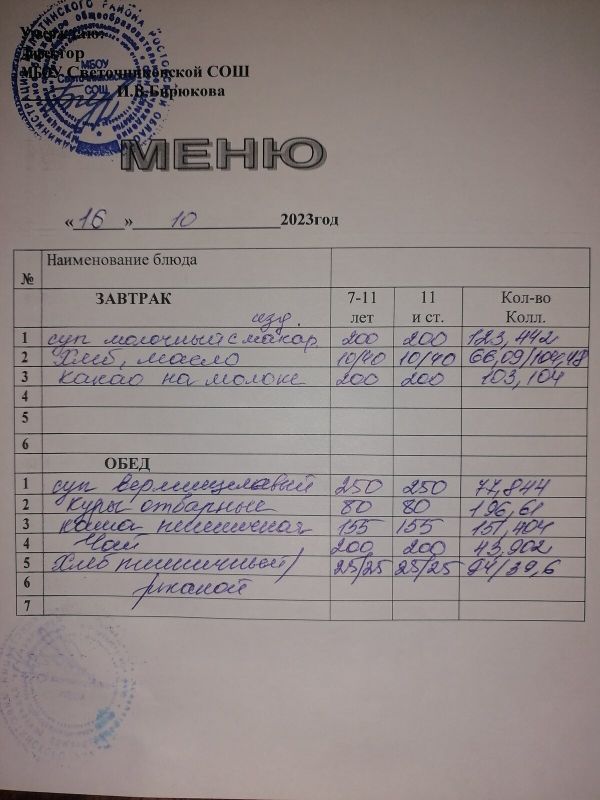 Утверждаю:
Директор
МБОУ Светочниковской СОШ
И.В.Бирюкова
МБОУ
СОШ
МЕНЮ
«16» 10 2023год
№ Наименование блюда
ЗАВТРАК 7-11 лет 11 и ст. Кол-во Колл.
изд.
1 суп молочный с макар 200 200 123,442
2 Хлеб, масло 10/40 10/40 66,09/104,48
3 какао на молоке 200 200 103,104
4
5
6
ОБЕД
1 суп вермишелевый 250 250 77,844
2 куры отварные 80 80 196,61
3 каша пшеничная 155 155 151,404
4 Чай 200 200 43,902
5 Хлеб пшеничный/ 25/25 25/25 94/39,6
6 ржаной
7